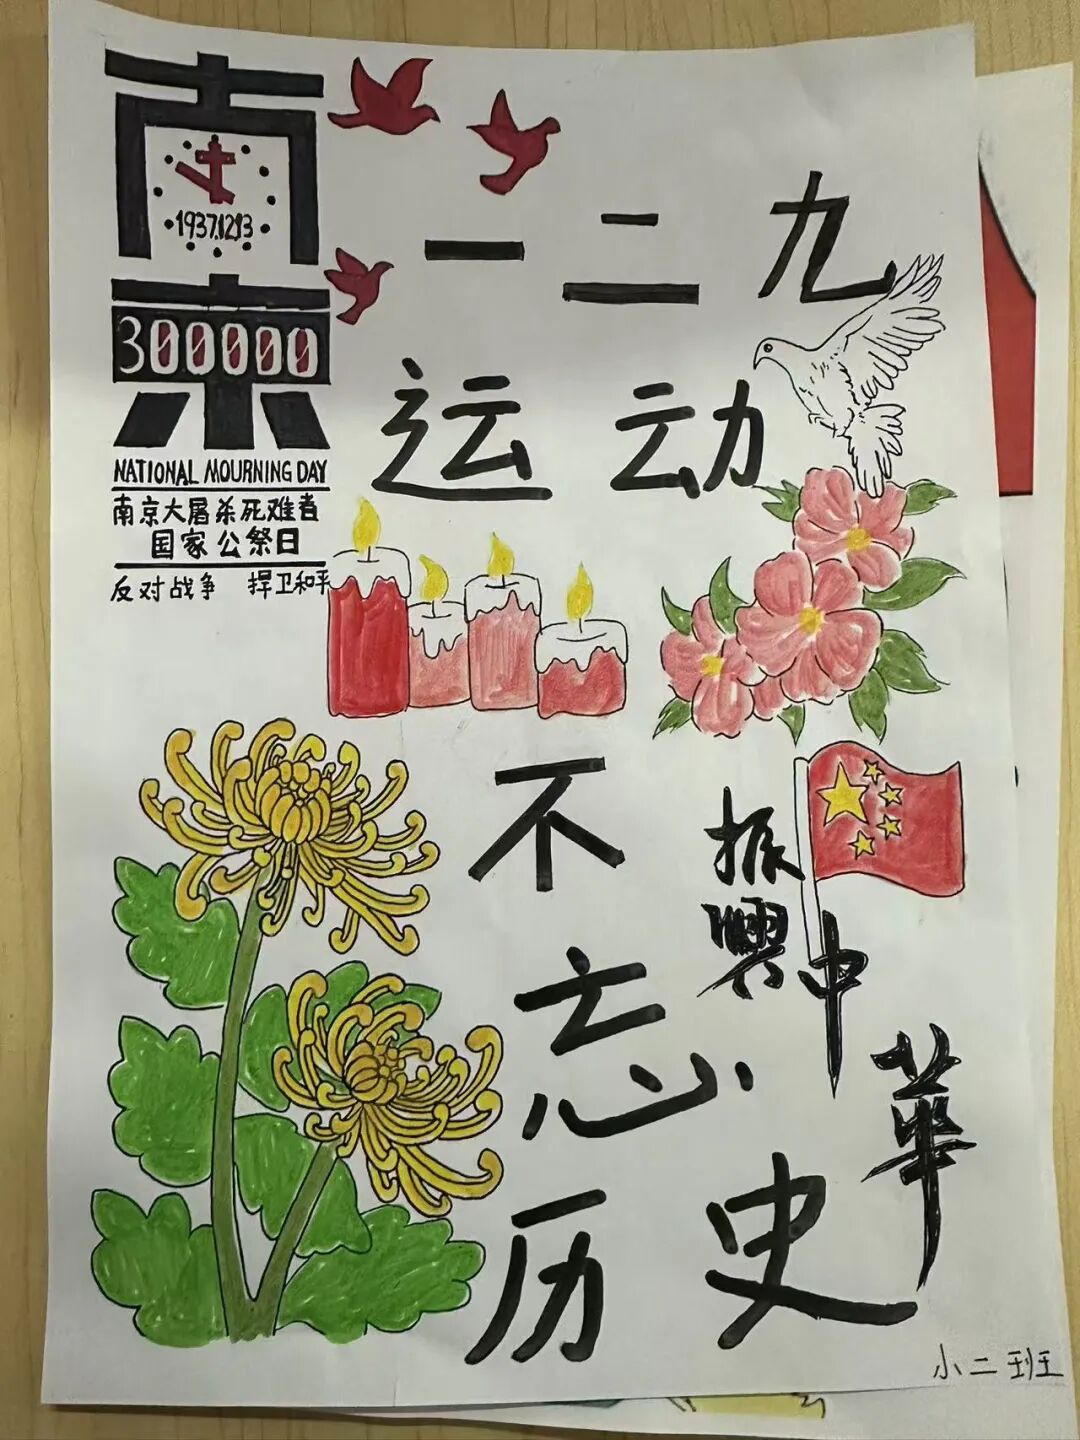 南
1937.12.13
京
300000
NATIONAL MOURNING DAY
南京大屠杀死难者
国家公祭日
反对战争 捍卫和平
一二九
运动
不忘
历史
振興中華
小二班